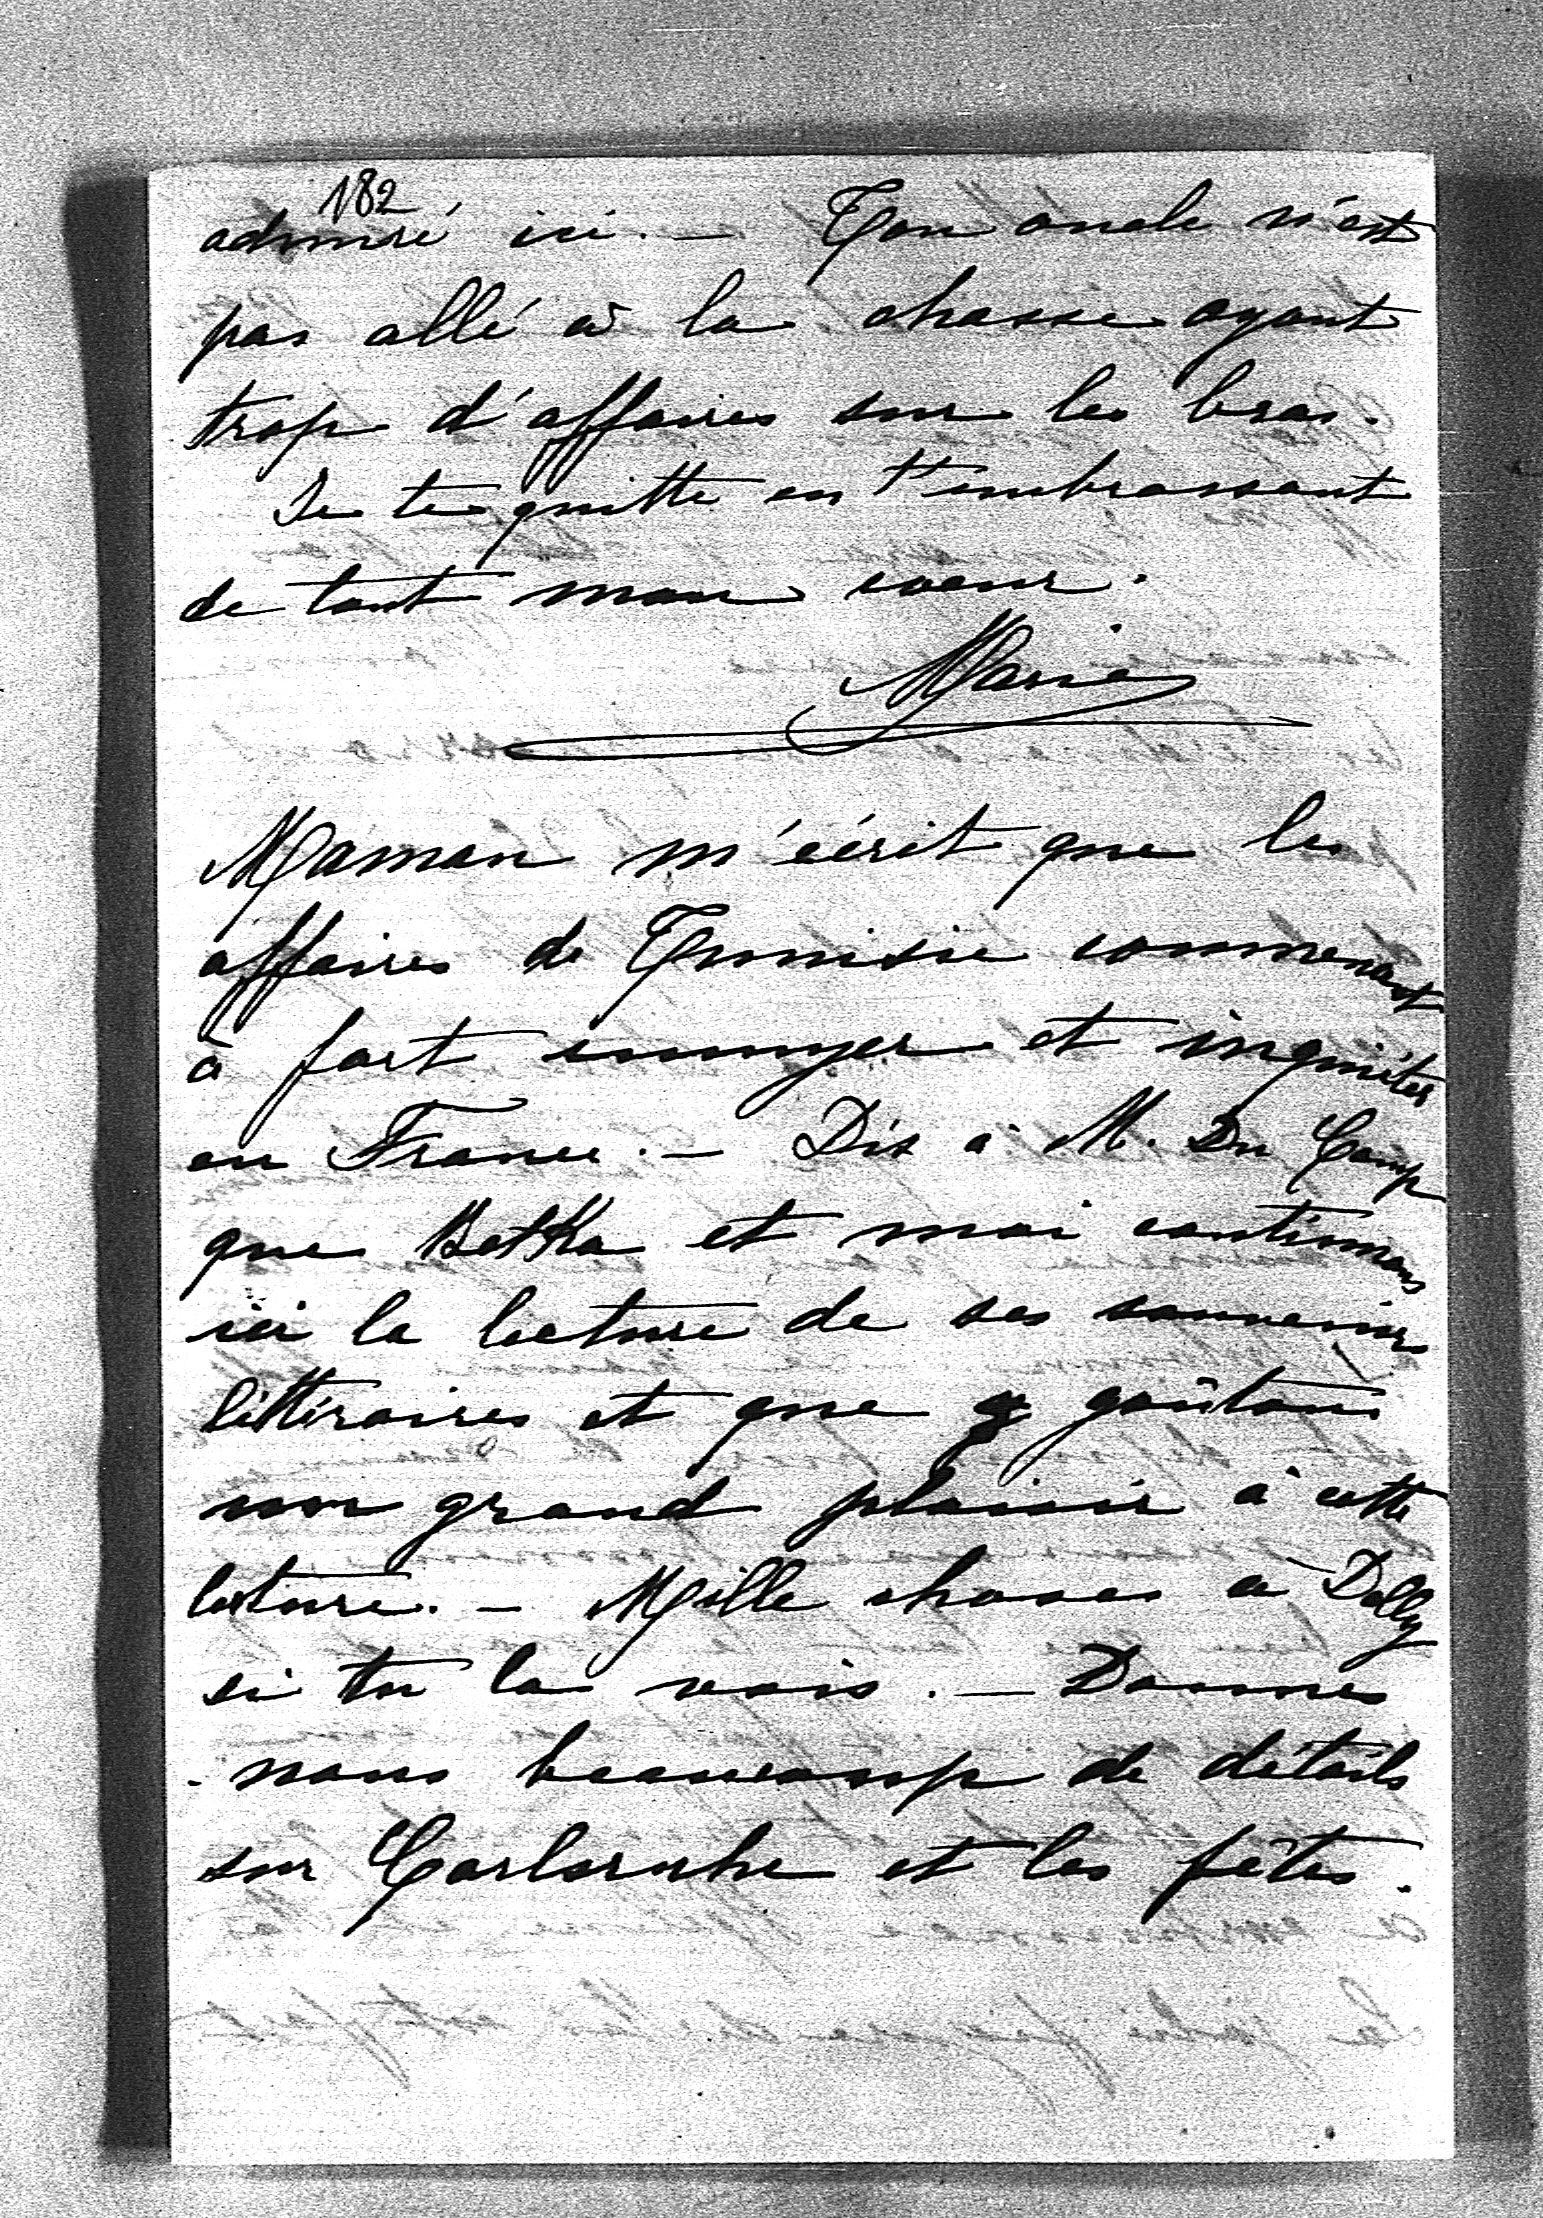 182
admiré ici. — Ton oncle n'est
pas allé à la chasse ayant
trop d'affaires sur les bras.
Je te quitte en t'embrassant
de tout mon coeur.
Marie
Maman m'écrit que les
affaires de Tunisie commencent
à fort ennuyer et inquiéter
en France. — Dis à M. Du Camp
que Betka et moi continuons
ici la lecture de ses souvenirs
littéraires et que goûtons
un grand plaisir à cette
lecture. — Mille choses à Dolly
si tu la vois. — Donnes
nous beaucoup de détails
sur Carlsruhe et les fêtes.